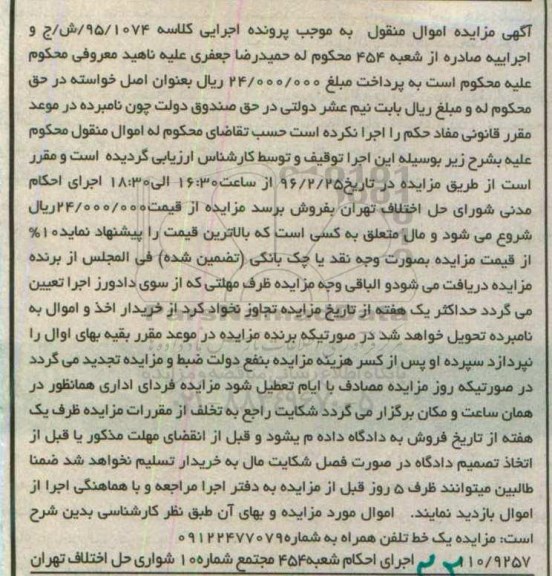 آگهی مزایده اموال منقول به موجب پرونده اجرایی کلاسه ۹۵/۱۰۷۴/ش/ج و
اجراییه صادره از شعبه ۴۵۴ محکوم له حمیدرضا جعفری علیه ناهید معروفی محکوم
علیه محکوم است به پرداخت مبلغ ۲۴/۰۰۰/۰۰۰ ریال بعنوان اصل خواسته در حق
محکوم له و مبلغ ریال بابت نیم عشر دولتی در حق صندوق دولت چون نامبرده در موعد
مقرر قانونی مفاد حکم را اجرا نکرده است حسب تقاضای محکوم له اموال منقول محکوم
علیه بشرح زیر بوسیله این اجرا توقیف و توسط کارشناس ارزیابی گردیده است و مقرر
است از طریق مزایده در تاریخ۹۶/۲/۲۵ از ساعت۱۶:۳۰ الی۱۸:۳۰ اجرای احکام
مدنی شورای حل اختلاف تهران بفروش برسد مزایده از قیمت۲۴/۰۰۰/۰۰۰ریال
شروع می شود و مال متعلق به کسی است که بالاترین قیمت را پیشنهاد نماید۱۰%
از قیمت مزایده بصورت وجه نقد یا چک بانکی (تضمین شده) فی المجلس از برنده
مزایده دریافت می شودو الباقی وجه مزایده ظرف مهلتی که از سوی دادورز اجرا تعیین
می گردد حداکثر یک هفته از تاریخ مزایده تجاوز نخواد کرد از خریدار اخذ و اموال به
نامبرده تحویل خواهد شد در صورتیکه برنده مزایده در موعد مقرر بقیه بهای اوال را
نپردازد سپرده او پس از کسر هزینه مزایده بنفع دولت ضبط و مزایده تجدید می گردد
در صورتیکه روز مزایده مصادف با ایام تعطیل شود مزایده فردای اداری همانظور در
همان ساعت و مکان برگزار می گردد شکایت راجع به تخلف از مقررات مزایده ظرف یک
هفته از تاریخ فروش به دادگاه داده م یشود و قبل از انقضای مهلت مذکور یا قبل از
اتخاذ تصمیم دادگاه در صورت فصل شکایت مال به خریدار تسلیم نخواهد شد ضمنا
طالبین میتوانند ظرف ۵ روز قبل از مزایده به دفتر اجرا مراجعه و با هماهنگی اجرا از
اموال بازدید نمایند. اموال مورد مزایده و بهای آن طبق نظر کارشناسی بدین شرح
است: مزایده یک خط تلفن همراه به شماره۰۹۱۲۲۴۷۷۰۷۹
۱۰/۹۲۵۷ اجرای احکام شعبه۴۵۴ مجتمع شماره۱۰ شواری حل اختلاف تهران